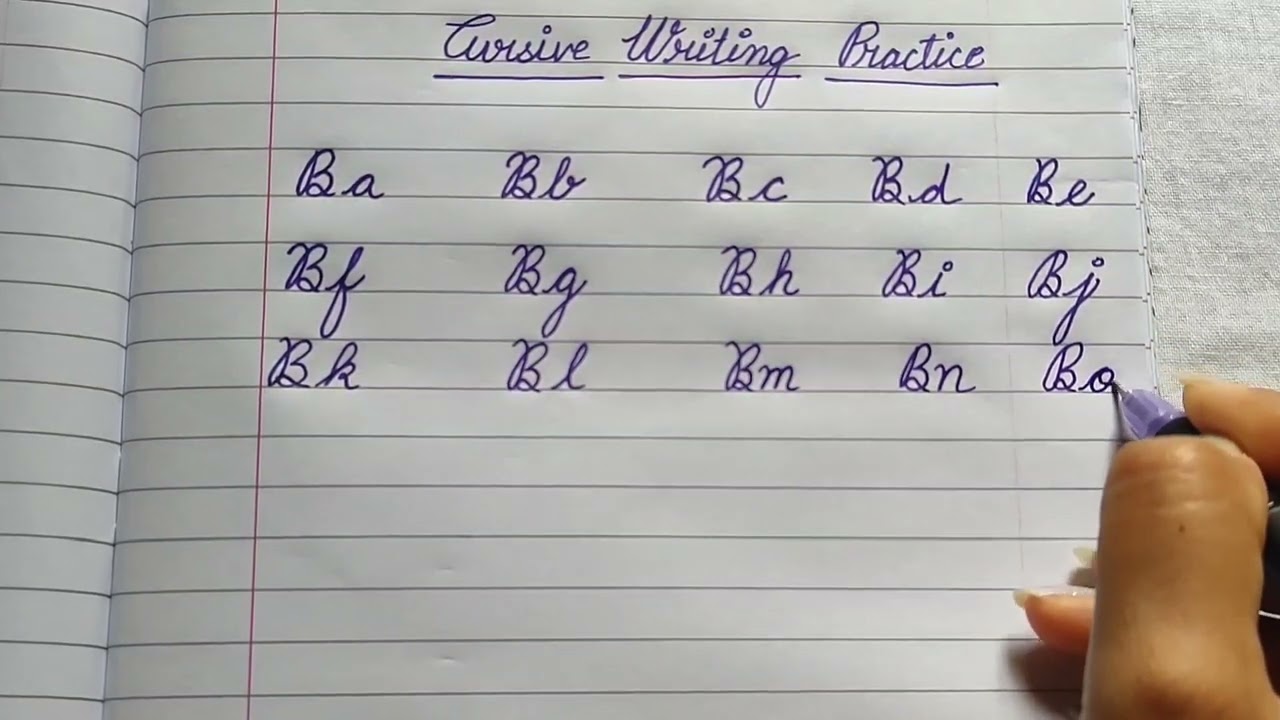 Cursive Writing Practice
Ba Bb Bc Bd Be
Bf Bg Bh Bi Bj
Bk Bl Bm Bn Bo